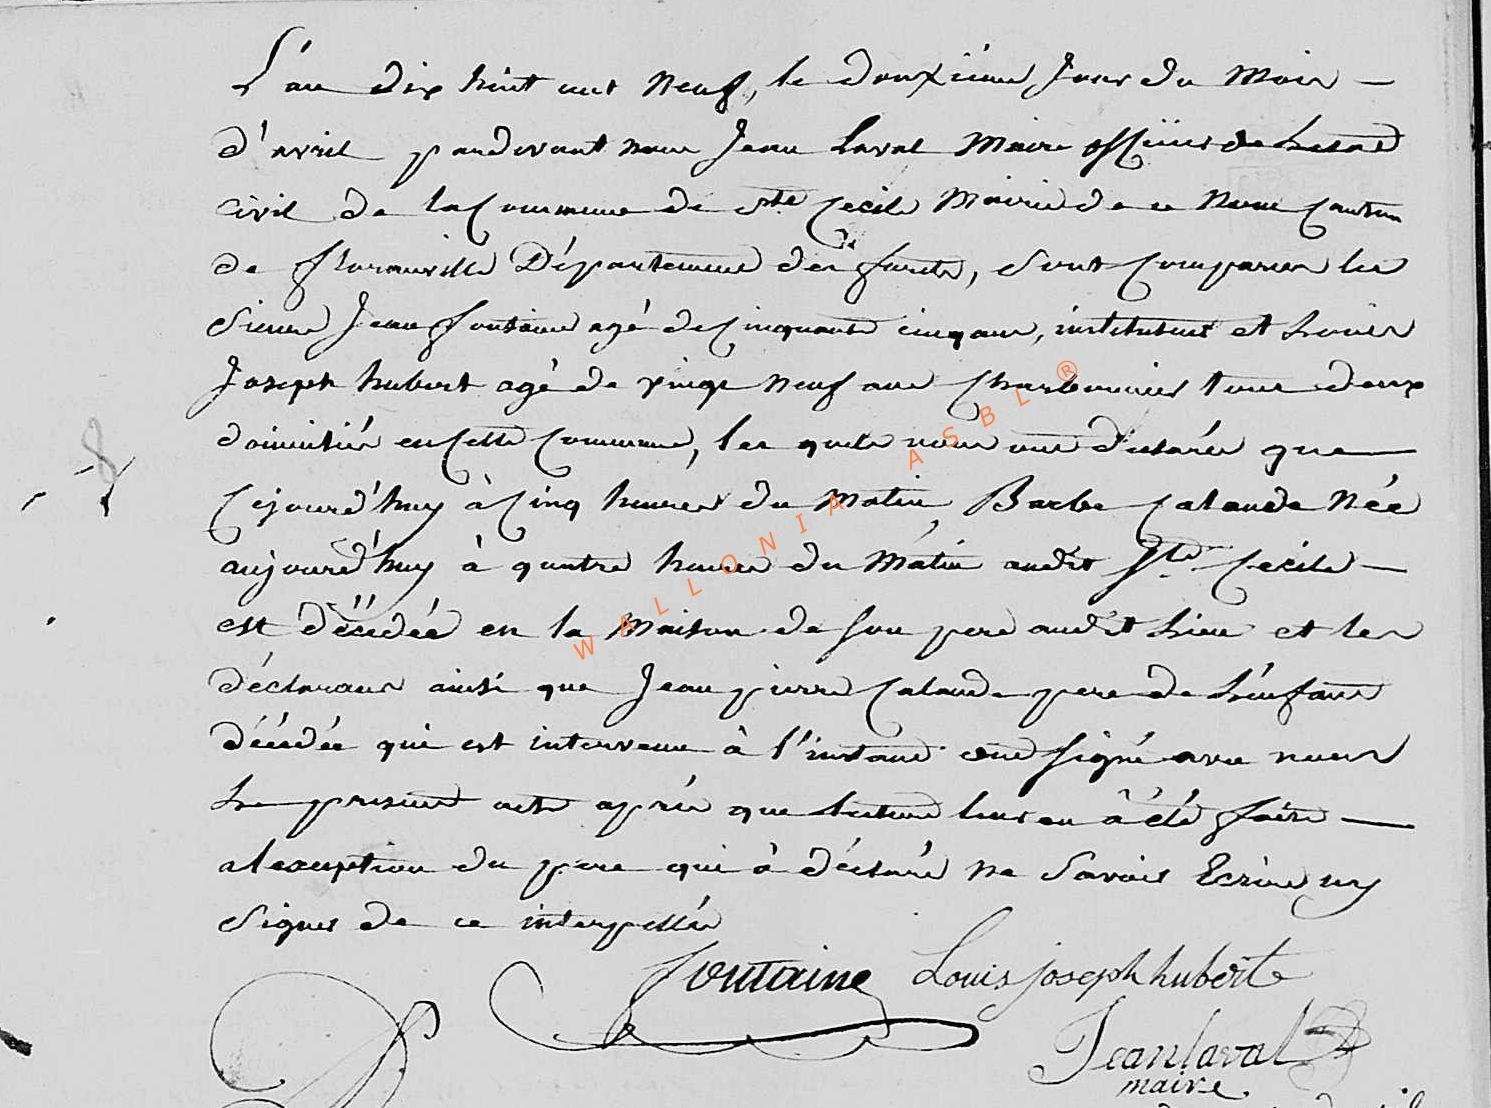 L'an dix huit cent neuf, le douxiéme Jour du Mois —
d'avril pardevant nous Jean Laval Maire officier de Letat
Civil de la Commune de Ste Cecile Mairie de ce Nom Canton
de florenville Département des forets, Sont Comparus les
Sieurs Jean fontaine agé de Cinquante cinq ans, instituteur et Louis
Joseph hubert agé de vingt neuf ans Charbonnier tous deux
domiciliés en Cette Commune, les quels nous ont déclarés que —
Cejourd'huy à Cinq heures du Matin, Barbe Calande Née
aujourd'huy à quatre heures du Matin audit Ste Cécile —
est décédée en la Maison de son pere audit Lieu et les
déclarans ainsi que Jean pierre Calande pere de L'enfant
décédée qui est intervenu à l'instant ont signé avec nous
Le present acte après que lecture leur en à été faite —
alexeuption du pere qui à déclaré ne Savoir Ecrire ny
Signer de ce interpellés
fontaine Louis joseph hubert
Jean laval
maire
WALLONIA ASBL ®